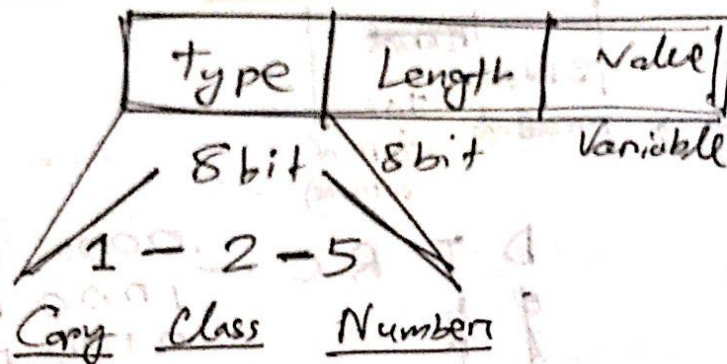 type Length Value
8bit 8bit Variable
1 - 2 - 5
Copy Class Number